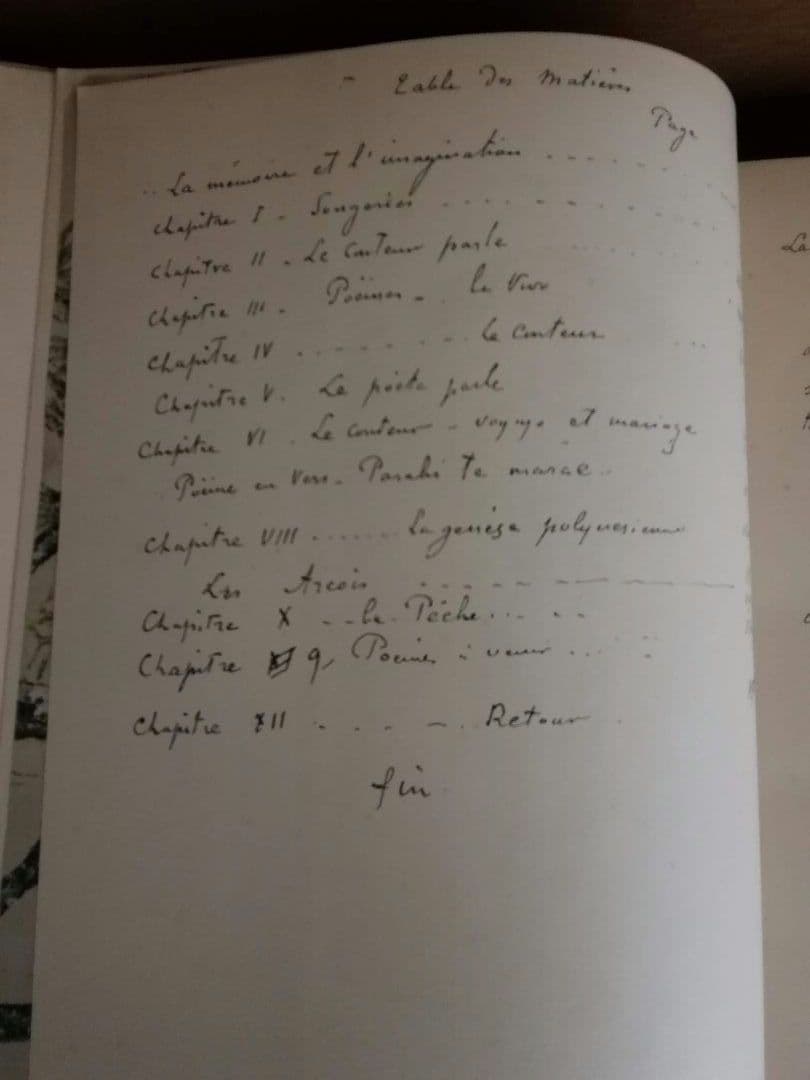 Table Des Matières
Page
La mémoire et l'imagination . . . . . .
Chapitre I - Songeries . . . . . . . . .
Chapitre II - Le Conteur parle
Chapitre III - Poëmes - le Vivo
Chapitre IV . . . . . . . le Conteur . . .
Chapitre V. Le poète parle
Chapitre VI . Le conteur - voyage et mariage
Poëme en Vers - Parahi Te marae
Chapitre VIII . . . . . . La genèse polynesienne
Les Areois . . . . . . .
Chapitre X . . . la Pêche . . . . .
Chapitre 9, Poemes à venir . . .
Chapitre XII . . . . . Retour
fin
La